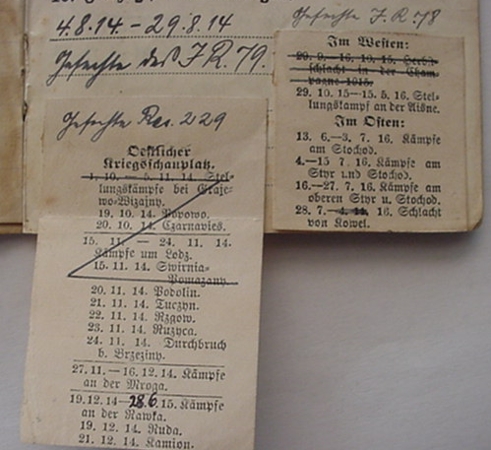 4.8.14 - 29.8.14
Gefechte des J.R. 79.
Gefechte J.R. 78
Im Westen:
29. 9.—16. 10. 15. Herbst-
schlacht in der Cham-
pagne 1915.
29. 10. 15—15. 5. 16 Stel-
lungskampf an der Aisne.
Im Osten:
13. 6.—3. 7. 16 Kämpfe
am Stochod.
4.—15 7. 16 Kämpfe am
Styr und Stochod.
16.—27. 7. 16 Kämpfe am
oberen Styr u. Stochod.
28. 7.—4. 11. 16 Schlacht
von Kowel.
Gefechte Res. 229
Oestlicher
Kriegsschauplatz.
4. 10. — 5. 11. 14. Stel-
lungskämpfe bei Graje-
wo-Wizajny.
19. 10. 14. Popowo.
20. 10. 14. Czarnavies.
15. 11. — 24. 11. 14.
Kämpfe um Lodz.
15. 11. 14. Swirnia-
Pomarzany.
20. 11. 14. Podolin.
21. 11. 14. Tuczyn.
22. 11. 14. Rzgow.
23. 11. 14. Ruzyca.
24. 11. 14. Durchbruch
b. Brzeziny.
27. 11. — 16. 12. 14. Kämpfe
an der Mroga.
19. 12. 14—28.6.15. Kämpfe
an der Rawka.
19. 12. 14. Ruda.
21. 12. 14. Kamion.